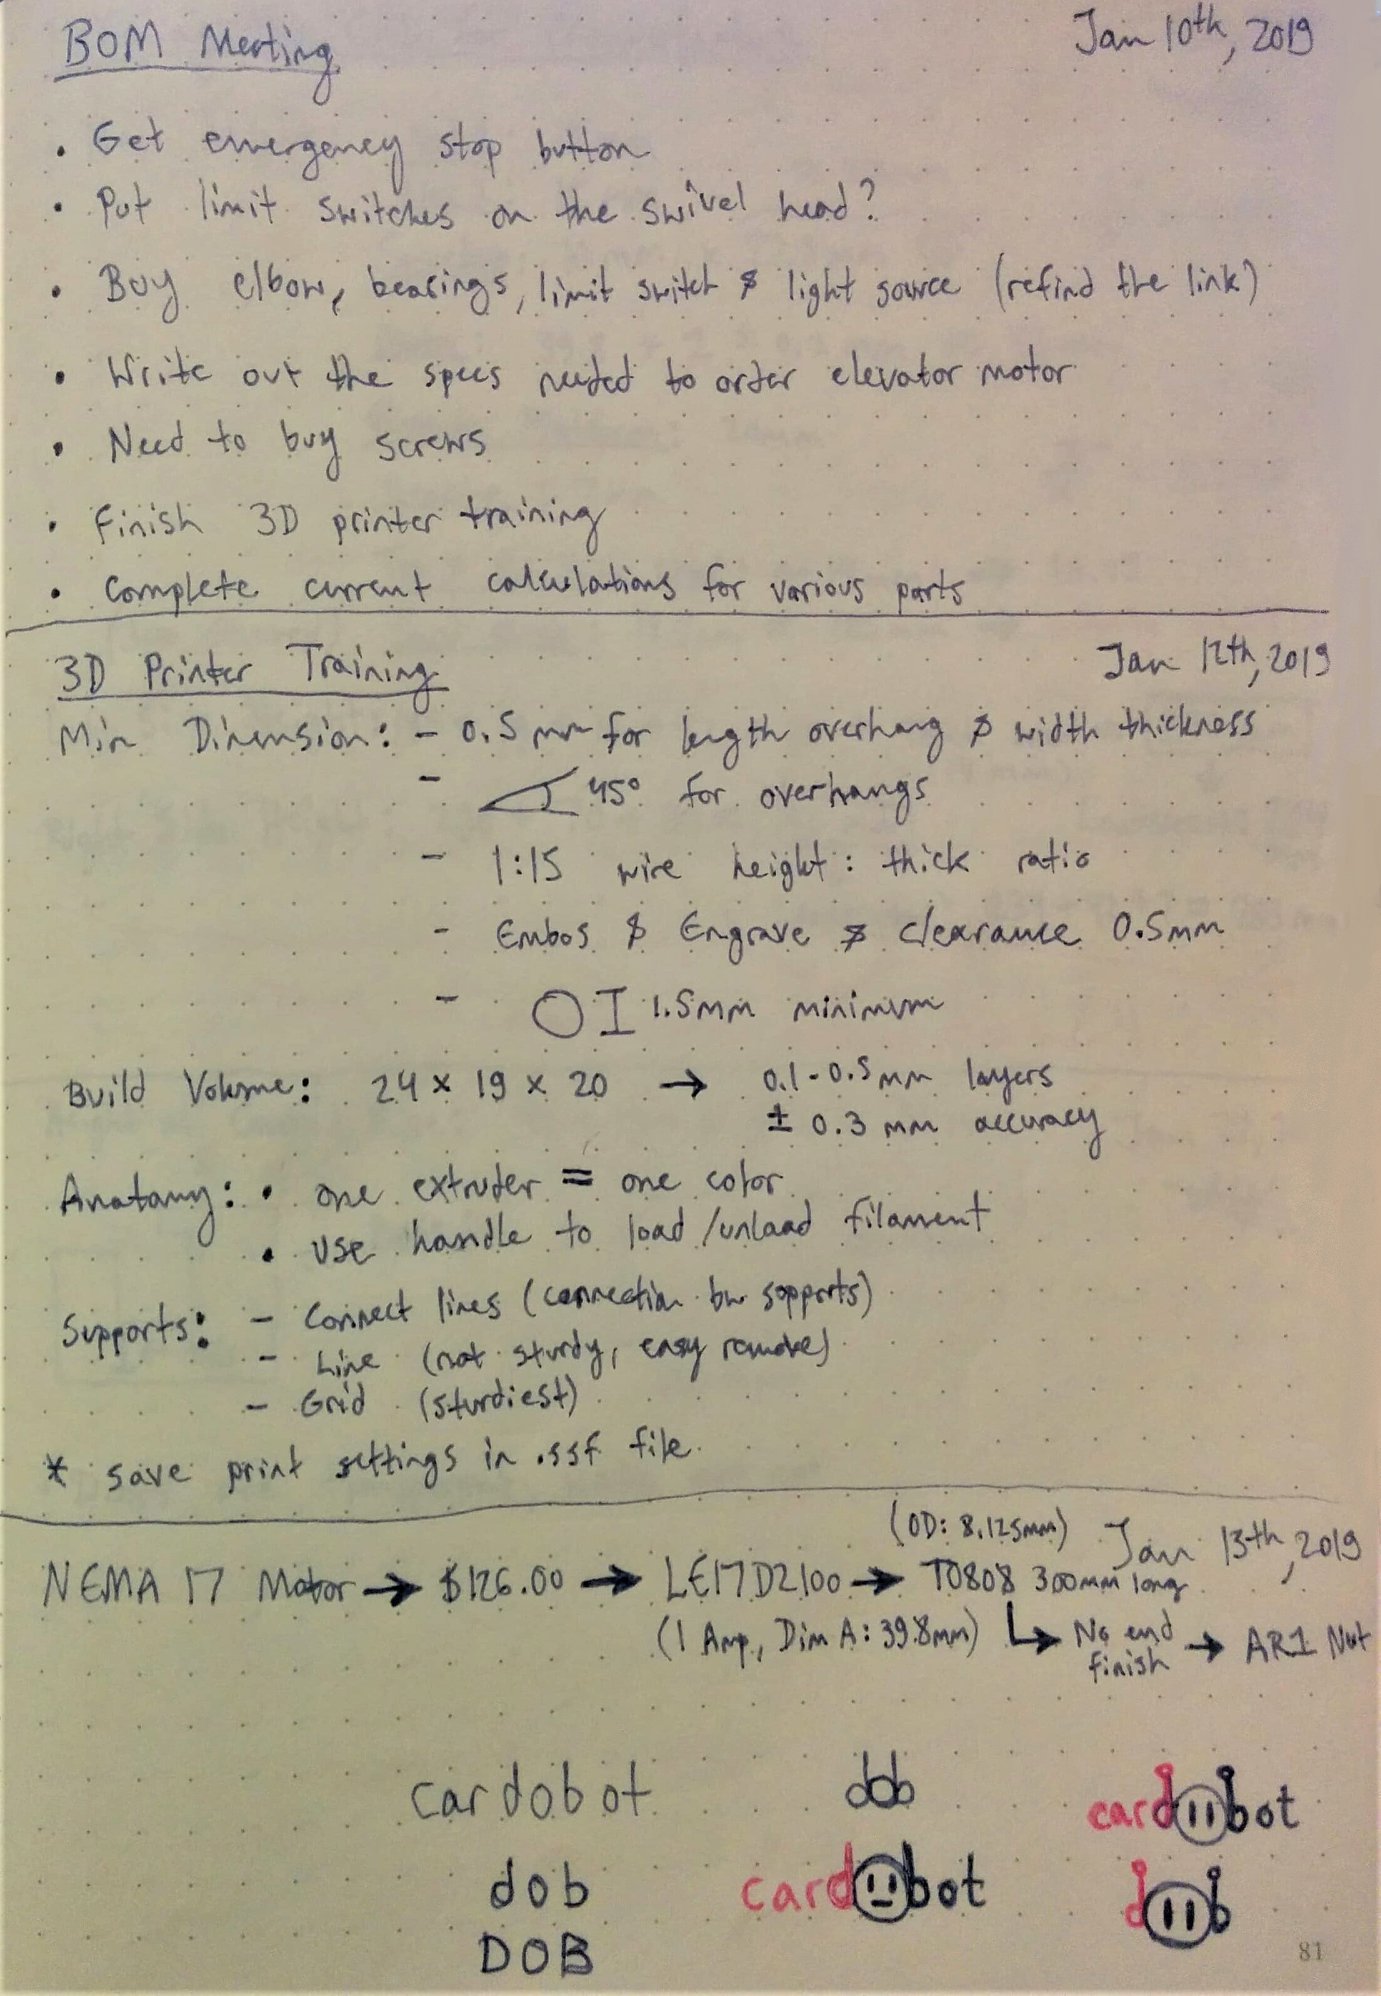 BOM Meeting
Jan 10th, 2019
• Get emergency stop button
• Put limit switches on the swivel head?
• Buy elbow, bearings, limit switch & light source (refind the link)
• Write out the specs needed to order elevator motor
• Need to buy screws
• Finish 3D printer training
• Complete current calculations for various parts
3D Printer Training
Jan 12th, 2019
Min Dimension: - 0.5 mm for length overhang & width thickness
- 45° for overhangs
- 1:15 wire height: thick ratio
- Embos & Engrave & clearance 0.5mm
- 1.5mm minimum
Build Volume: 24 x 19 x 20 → 0.1-0.5mm layers
± 0.3 mm accuracy
Anatomy: • one extruder = one color
• Use handle to load/unload filament
Supports: - Connect lines (connection bw supports)
- Line (not sturdy, easy remove)
- Grid (sturdiest)
* save print settings in .ssf file
(OD: 8.125mm)
Jan 13th, 2019
NEMA 17 Motor → $126.00 → LE17D2100 → T0808 300mm long
(1 Amp, Dim A: 39.8mm) ↳ No end finish → AR1 Nut
cardobot
dob
cardbot
dob
cardbot
db
DOB
81